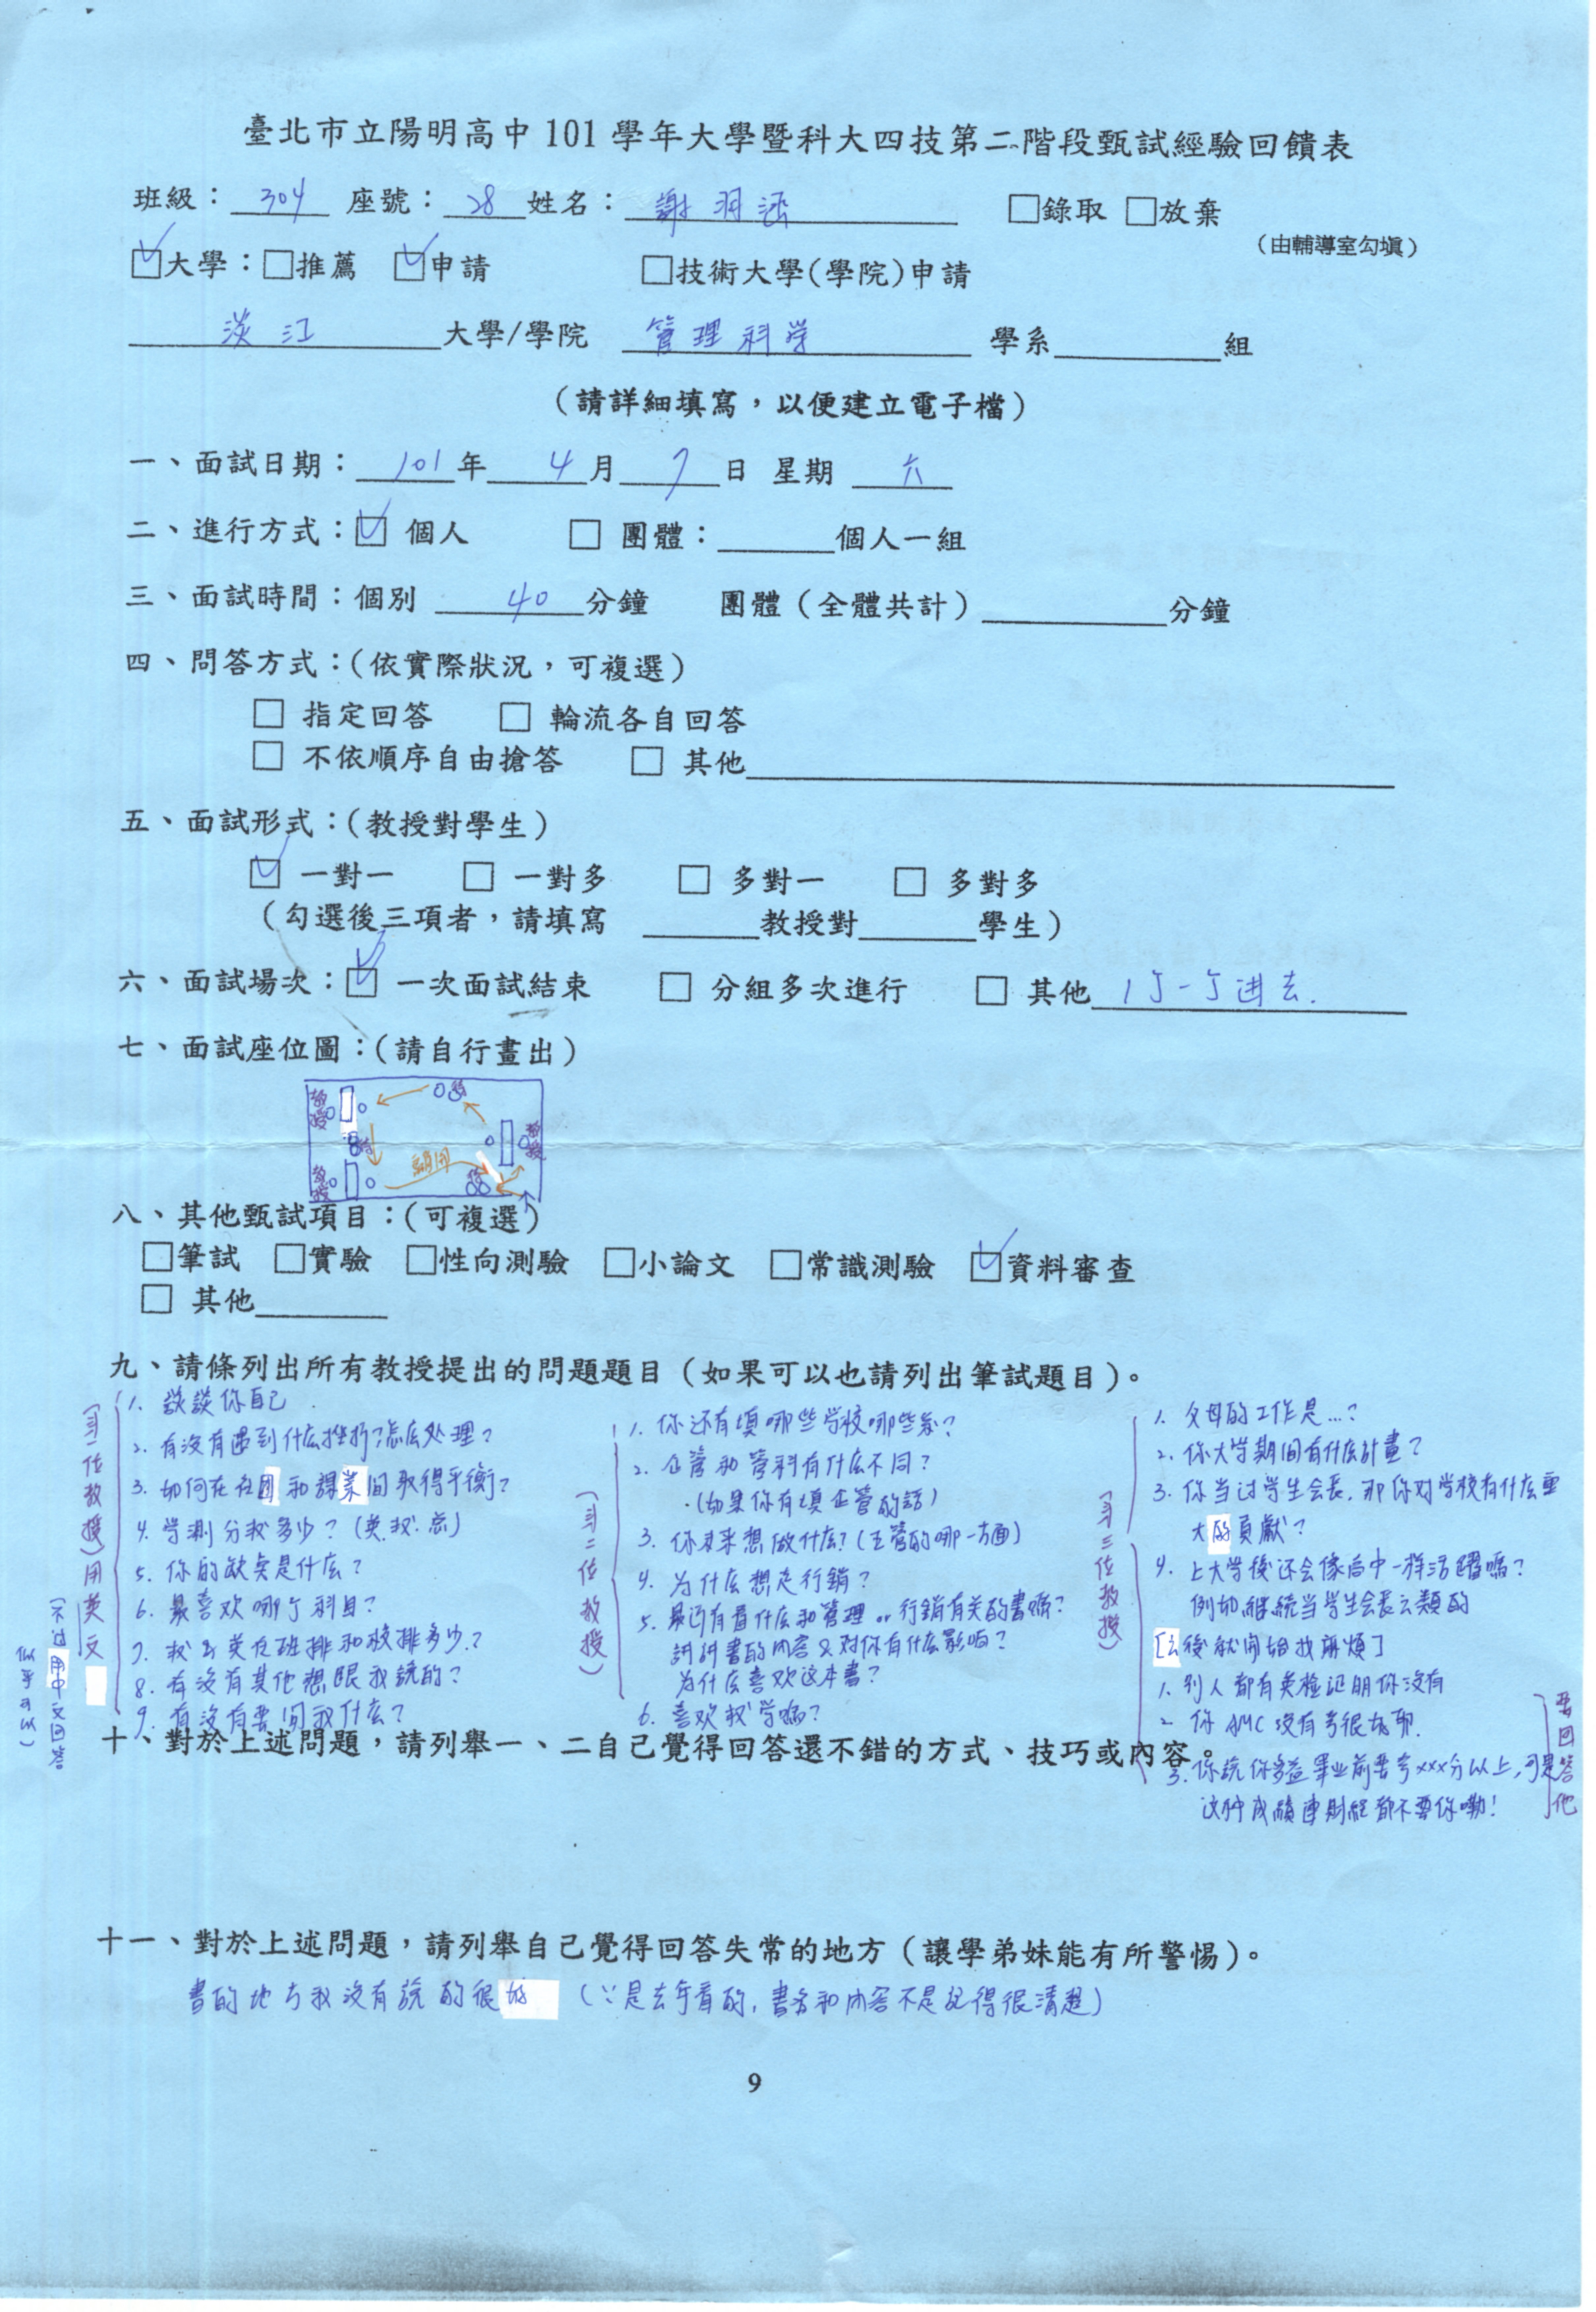 臺北市立陽明高中 101 學年大學暨科大四技第二階段甄試經驗回饋表
班級：304 座號：28 姓名：謝羽涵 □錄取 □放棄
（由輔導室勾填）
☑大學：□推薦 ☑申請 □技術大學(學院)申請
淡江 大學/學院 管理科学 學系 組
（請詳細填寫，以便建立電子檔）
一、面試日期：101年 4月 7日 星期 六
二、進行方式：☑ 個人 □ 團體： 個人一組
三、面試時間：個別 40 分鐘 團體（全體共計） 分鐘
四、問答方式：(依實際狀況，可複選)
□ 指定回答 □ 輪流各自回答
□ 不依順序自由搶答 □ 其他
五、面試形式：(教授對學生)
☑ 一對一 □ 一對多 □ 多對一 □ 多對多
（勾選後三項者，請填寫 教授對 學生）
六、面試場次：☑ 一次面試結束 □ 分組多次進行 □ 其他 1个一个进去.
七、面試座位圖：(請自行畫出)
教授
教授
教授
八、其他甄試項目：(可複選)
□筆試 □實驗 □性向測驗 □小論文 □常識測驗 ☑資料審查
□ 其他
九、請條列出所有教授提出的問題題目（如果可以也請列出筆試題目）。
(第一位教授)用英文
(不过用中文回答
似乎可以)
1. 談談你自己.
2. 有沒有遇到什么挫折？怎么处理？
3. 如何在社团和課業间取得平衡？
4. 学測分数多少？(英.数.总)
5. 你的缺点是什么？
6. 最喜欢哪个科目？
7. 数&英在班排和校排多少.？
8. 有沒有其他想跟我說的？
9. 有沒有要问我什么？
(第二位教授)
1. 你还有填哪些学校哪些系？
2. 企管和管科有什么不同？
(如果你有填企管的話)
3. 你未来想做什么？(企管的哪一方面)
4. 为什么想走行銷？
5. 最近有看什么和管理 or 行銷有关的書嗎？
講講書的内容&对你有什么影响？
为什么喜欢这本書？
6. 喜欢数学嗎？
(第三位教授)
1. 父母的工作是...？
2. 你大学期间有什么計畫？
3. 你当过学生会長，那你对学校有什么重
大的貢獻？
4. 上大学後还会像高中一样活躍嗎？
例如繼統当学生会長之類的
[之後就開始找麻煩]
1. 别人都有英檢证明你沒有
2. 你AMC沒有考很好耶.
3. 你說你多益畢业前要考xxx分以上，可是
这种成績連財經都不要你嘞！
要回答他
十、對於上述問題，請列舉一、二自己覺得回答還不錯的方式、技巧或內容。
十一、對於上述問題，請列舉自己覺得回答失常的地方（讓學弟妹能有所警惕）。
書的地方我沒有說的很好 (∵是去年看的，書名和内容不是记得很清楚)
9